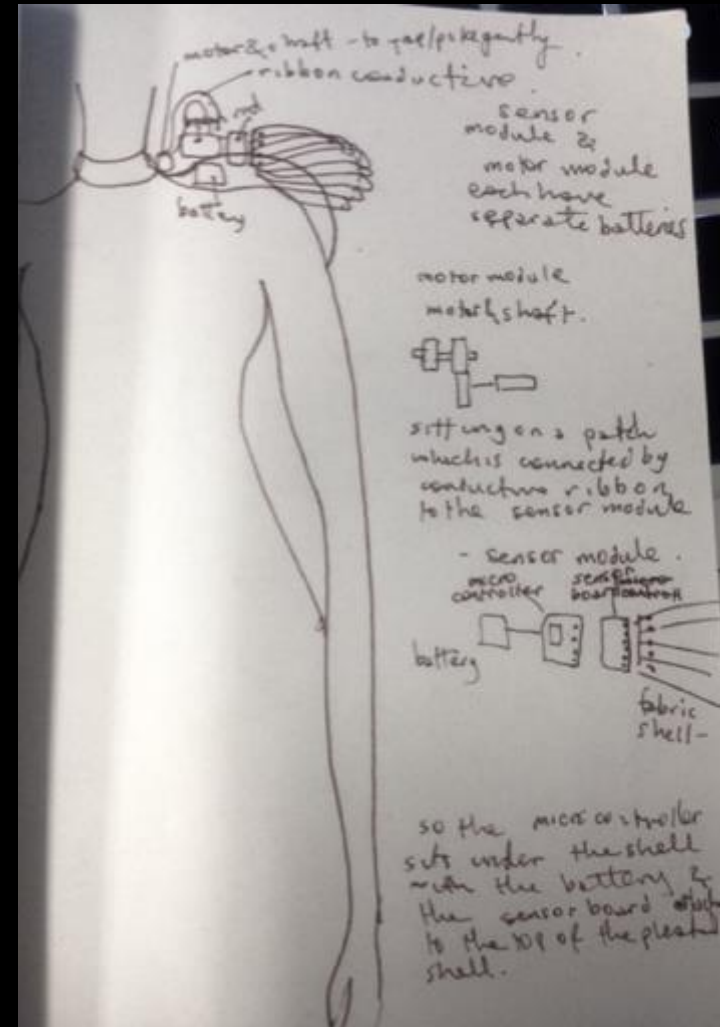 motor & shaft - to tap/poke gently.
ribbon conductive.
battery
sensor
module &
motor module
each have
separate batteries
motor module
motor & shaft.
sitting on a patch
which is connected by
conductive ribbon
to the sensor module
- sensor module.
micro
controller
sensor
board
battery
fabric
shell-
so the microcontroller
sits under the shell
with the battery &
the sensor board
to the top of the pleated
shell.